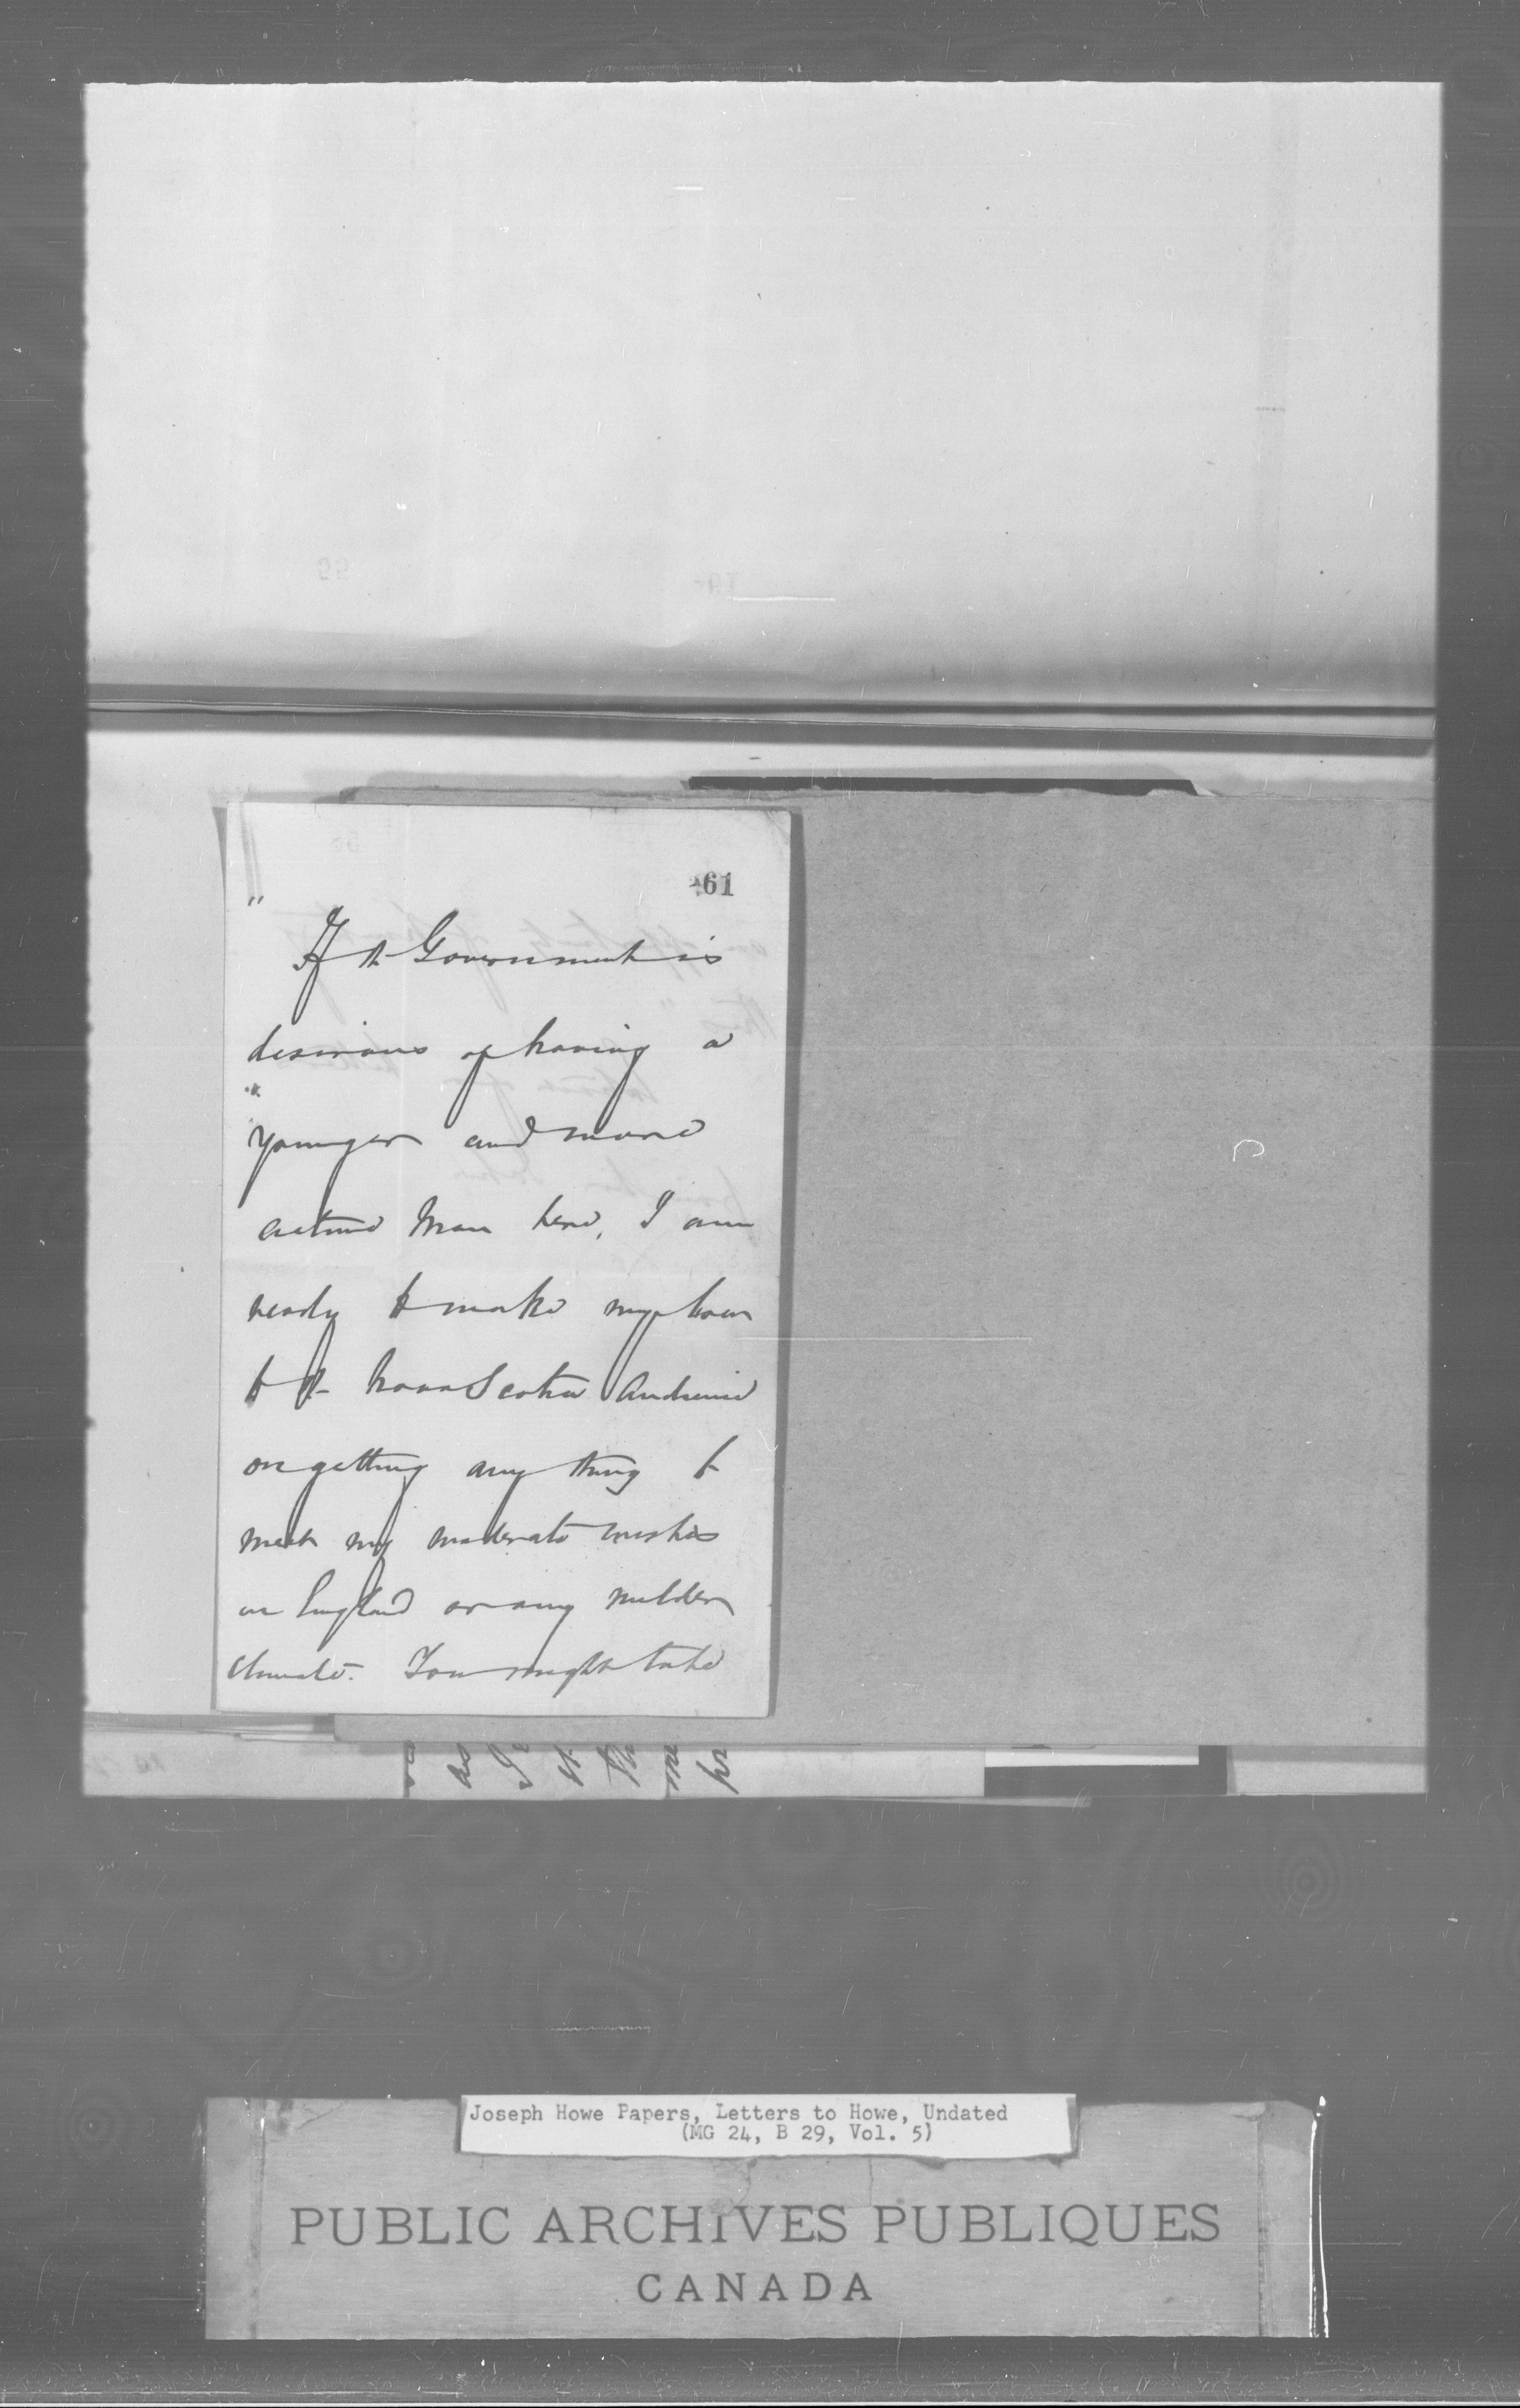 61
"
If the Government is
desirous of having a
"
younger and more
active Man here, I am
ready to make my bow
to the Nova Scotia Audience
on getting any thing to
meet my moderate wishes
in England or any milder
climate. You might take
Joseph Howe Papers, Letters to Howe, Undated
(MG 24, B 29, Vol. 5)
PUBLIC ARCHIVES PUBLIQUES
CANADA